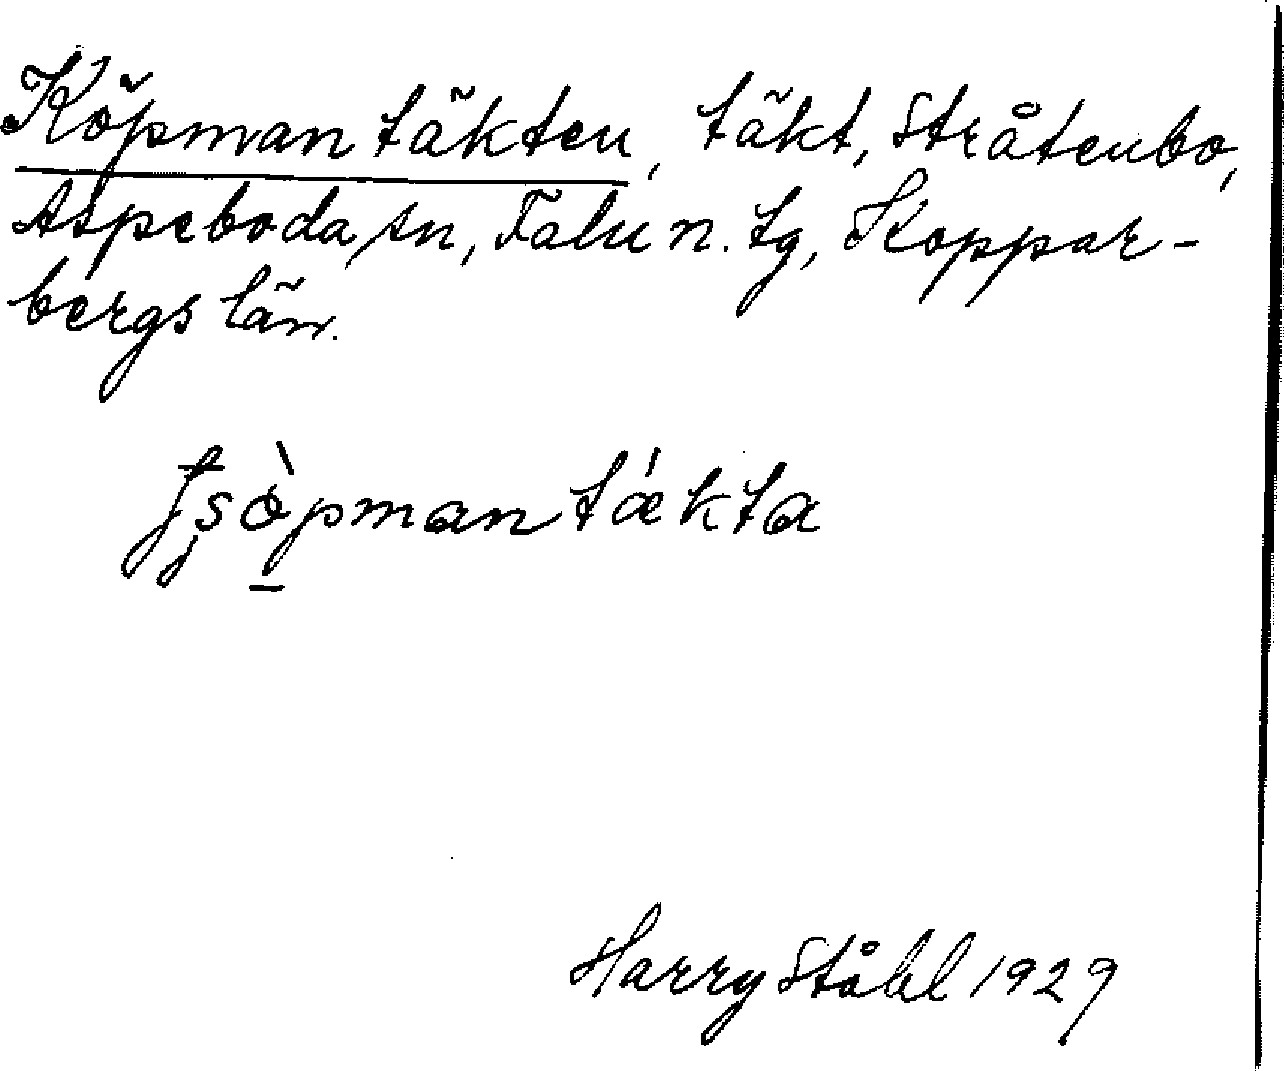 Köpmantäkten, täkt, Stråtenbo,
Aspeboda sn, Falu n. tg, Koppar-
bergs län.
Harry Ståhl 1929